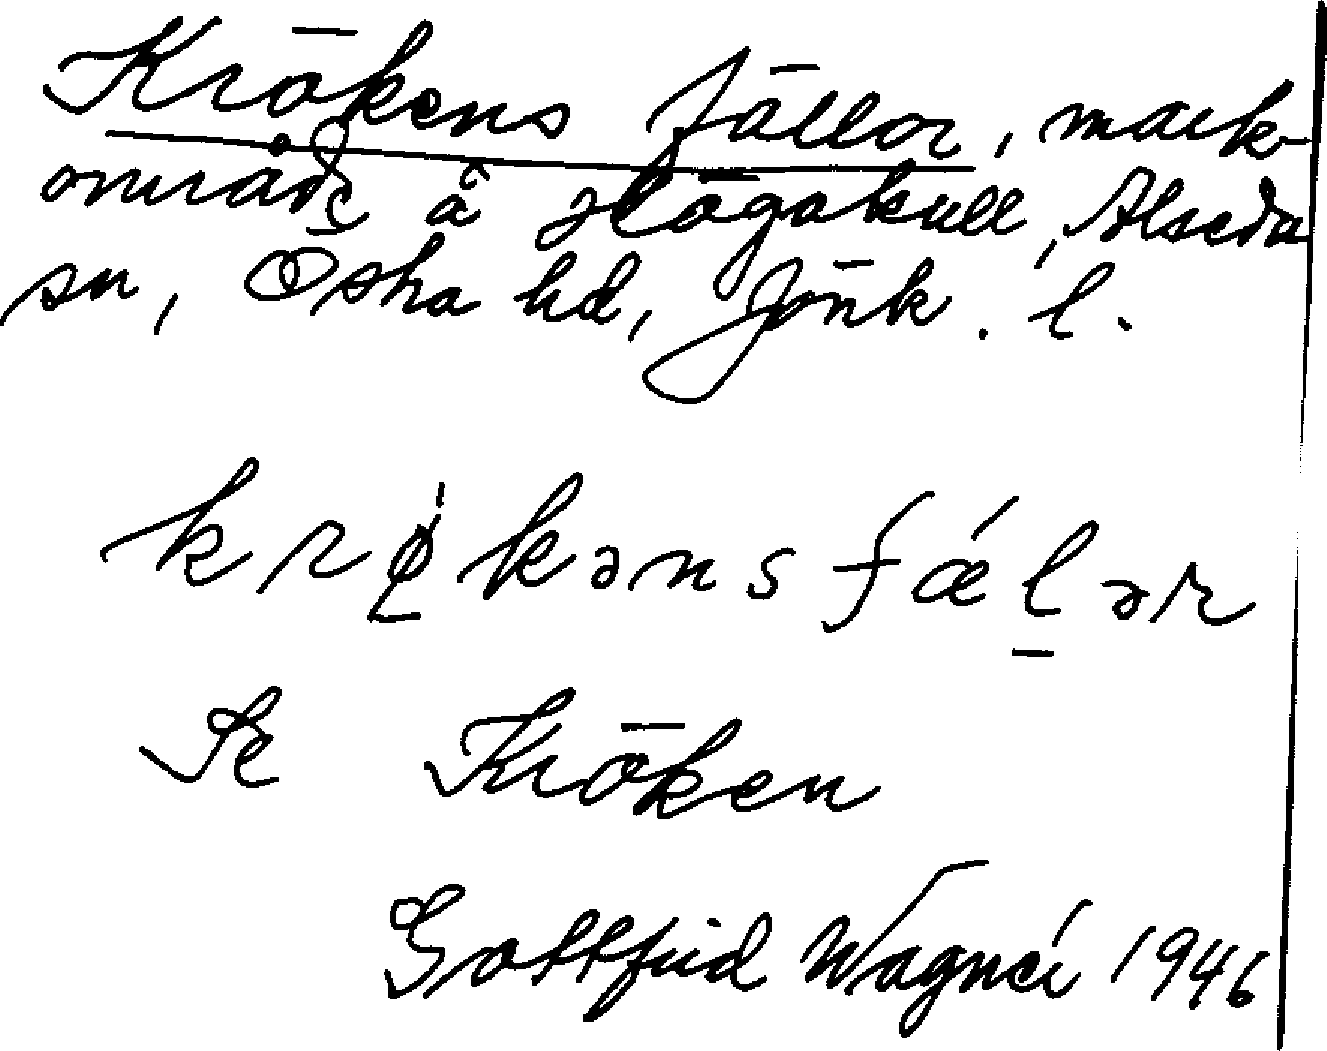 Krökens fällor, mark-
område å Högakull, Alseda
sn, Östra hd, Jönk. l.
krø̀kənsfǽl̠ər
Se Kröken
Gottfrid Wagnér 1946